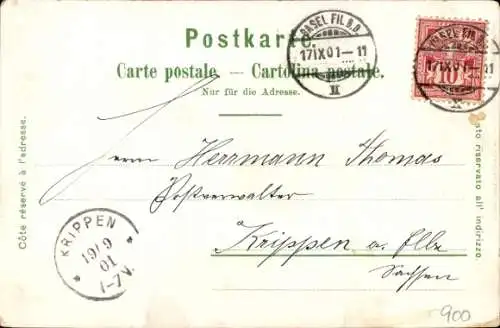 Postkarte.
Carte postale. — Cartolina postale.
Nur für die Adresse.
BASEL FIL. B.B.
17 IX 01 – 11
II
17 IX 01
10
11
Herrn Herrmann Thomas
Postverwalter
Krippen a. Elbe
Sachsen
KRIPPEN
19/9
01
1-7V.
Côte réservé à l'adresse.
riservato all' indirizzo.
900